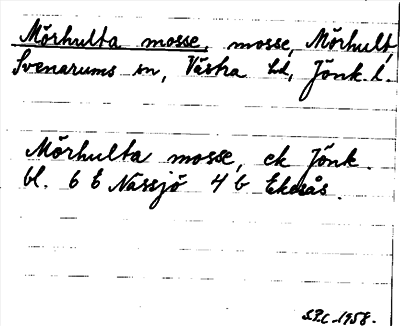 Mörhulta mosse, mosse, Mörhult,
Svenarums sn, Västra hd, Jönk. l.
Mörhulta mosse, ek Jönk.
bl. 6 E Nässjö 4 b Ekesås.
1958.